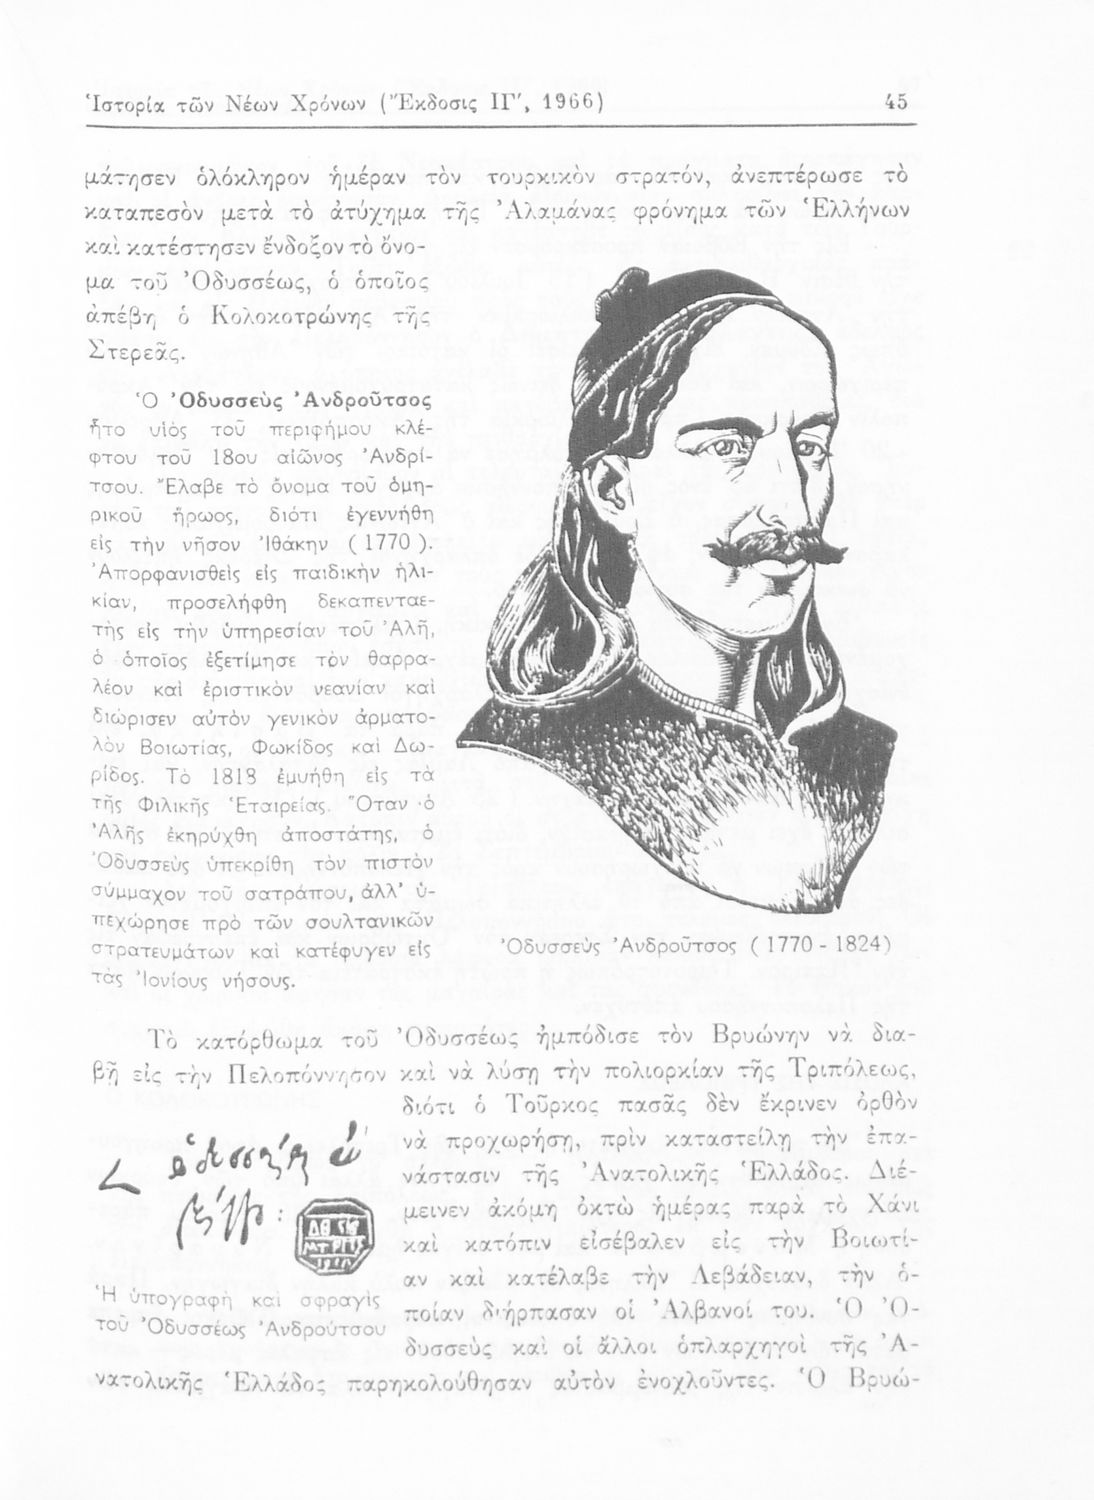 Ἱστορία τῶν Νέων Χρόνων (Ἔκδοσις ΙΓ', 1966) 45
μάτησεν ὁλόκληρον ἡμέραν τὸν τουρκικὸν στρατόν, ἀνεπτέρωσε τὸ
καταπεσὸν μετὰ τὸ ἀτύχημα τῆς Ἀλαμάνας φρόνημα τῶν Ἑλλήνων
καὶ κατέστησεν ἔνδοξον τὸ ὄνο-
μα τοῦ Ὀδυσσέως, ὁ ὁποῖος
ἀπέβη ὁ Κολοκοτρώνης τῆς
Στερεᾶς.
Ὁ Ὀδυσσεὺς Ἀνδροῦτσος
ἦτο υἱὸς τοῦ περιφήμου κλέ-
φτου τοῦ 18ου αἰῶνος Ἀνδρί-
τσου. Ἔλαβε τὸ ὄνομα τοῦ ὁμη-
ρικοῦ ἥρωος, διότι ἐγεννήθη
εἰς τὴν νῆσον Ἰθάκην (1770).
Ἀπορφανισθεὶς εἰς παιδικὴν ἡλι-
κίαν, προσελήφθη δεκαπενταε-
τὴς εἰς τὴν ὑπηρεσίαν τοῦ Ἀλῆ,
ὁ ὁποῖος ἐξετίμησε τὸν θαρρα-
λέον καὶ ἐριστικὸν νεανίαν καὶ
διώρισεν αὐτὸν γενικὸν ἁρματο-
λὸν Βοιωτίας, Φωκίδος καὶ Δω-
ρίδος. Τὸ 1818 ἐμυήθη εἰς τὰ
τῆς Φιλικῆς Ἑταιρείας. Ὅταν ὁ
Ἀλῆς ἐκηρύχθη ἀποστάτης, ὁ
Ὀδυσσεὺς ὑπεκρίθη τὸν πιστὸν
σύμμαχον τοῦ σατράπου, ἀλλ' ὑ-
πεχώρησε πρὸ τῶν σουλτανικῶν
στρατευμάτων καὶ κατέφυγεν εἰς
τὰς Ἰονίους νήσους.
Ὀδυσσεὺς Ἀνδροῦτσος (1770 - 1824)
Τὸ κατόρθωμα τοῦ Ὀδυσσέως ἡμπόδισε τὸν Βρυώνην νὰ δια-
βῇ εἰς τὴν Πελοπόννησον καὶ νὰ λύσῃ τὴν πολιορκίαν τῆς Τριπόλεως,
διότι ὁ Τοῦρκος πασᾶς δὲν ἔκρινεν ὀρθὸν
νὰ προχωρήσῃ, πρὶν καταστείλῃ τὴν ἐπα-
νάστασιν τῆς Ἀνατολικῆς Ἑλλάδος. Διέ-
μεινεν ἀκόμη ὀκτὼ ἡμέρας παρὰ τὸ Χάνι
καὶ κατόπιν εἰσέβαλεν εἰς τὴν Βοιωτί-
αν καὶ κατέλαβε τὴν Λεβάδειαν, τὴν ὁ-
ποίαν διήρπασαν οἱ Ἀλβανοί του. Ὁ Ὀ-
δυσσεὺς καὶ οἱ ἄλλοι ὁπλαρχηγοὶ τῆς Ἀ-
νατολικῆς Ἑλλάδος παρηκολούθησαν αὐτὸν ἐνοχλοῦντες. Ὁ Βρυώ-
Ἡ ὑπογραφὴ καὶ σφραγὶς
τοῦ Ὀδυσσέως Ἀνδρούτσου